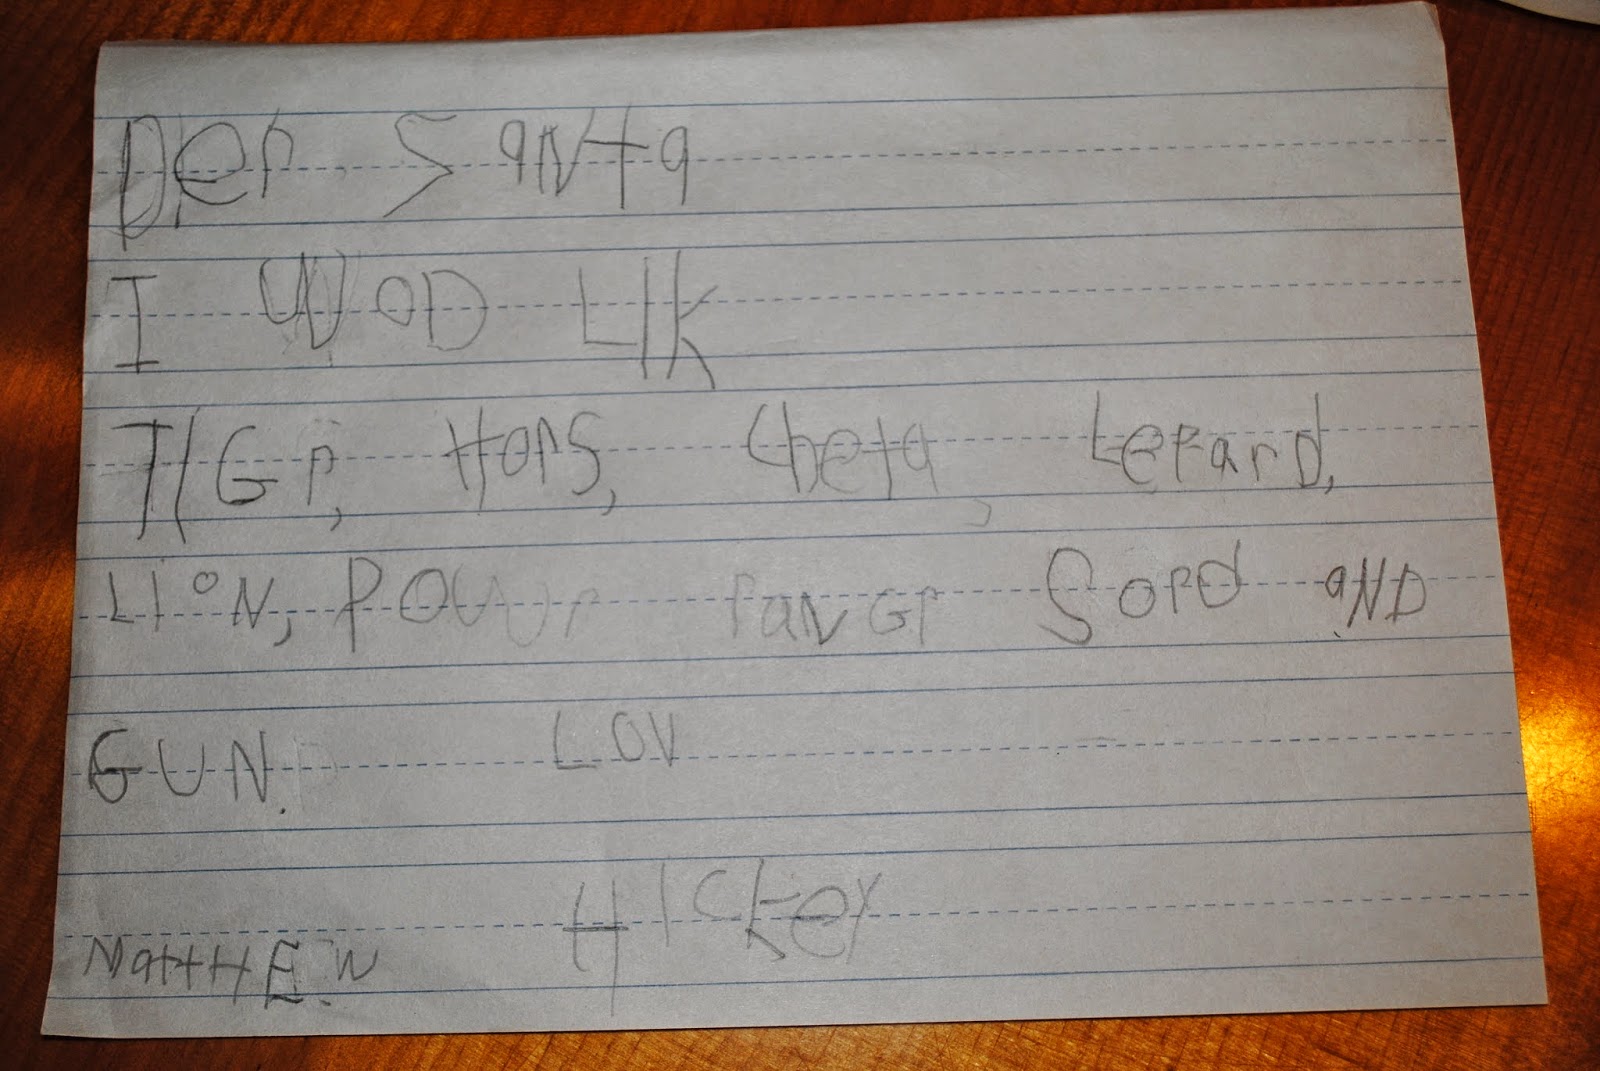 Der Santa
I WOD LIk
TIGr, Hors, Cheta, Lepard,
LioN, POWUr ranGr Sord aND
GUN. LOV
MattHEW HIckey